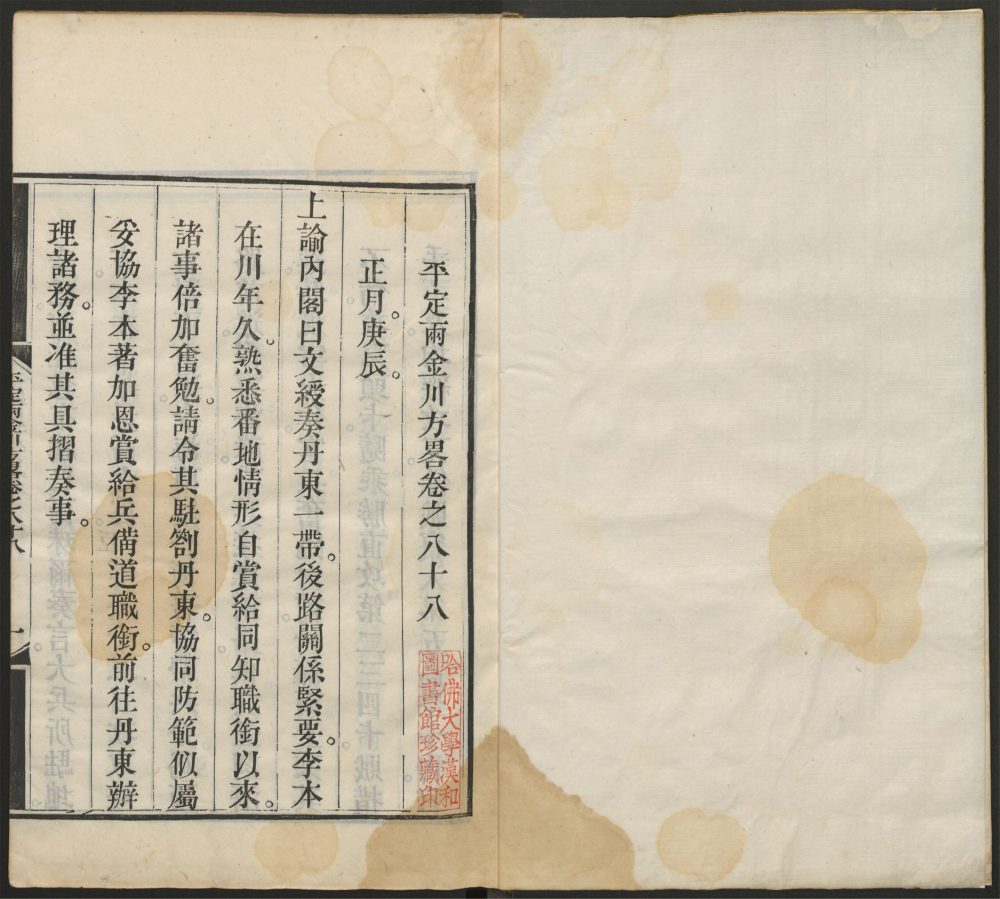 平定兩金川方畧卷之八十八
哈佛大學漢和
圖書館珍藏印
正月。庚辰。
上諭內閣曰文綬奏丹東一帶。後路關係緊要。李本
在川年久。熟悉番地情形自賞給同知職銜以來。
諸事倍加奮勉。請令其駐劄丹東。協同防範似屬
妥協李本著加恩賞給兵備道職銜。前往丹東辦
理諸務。並准其具摺奏事。
平定兩金川方畧卷之八十八
一